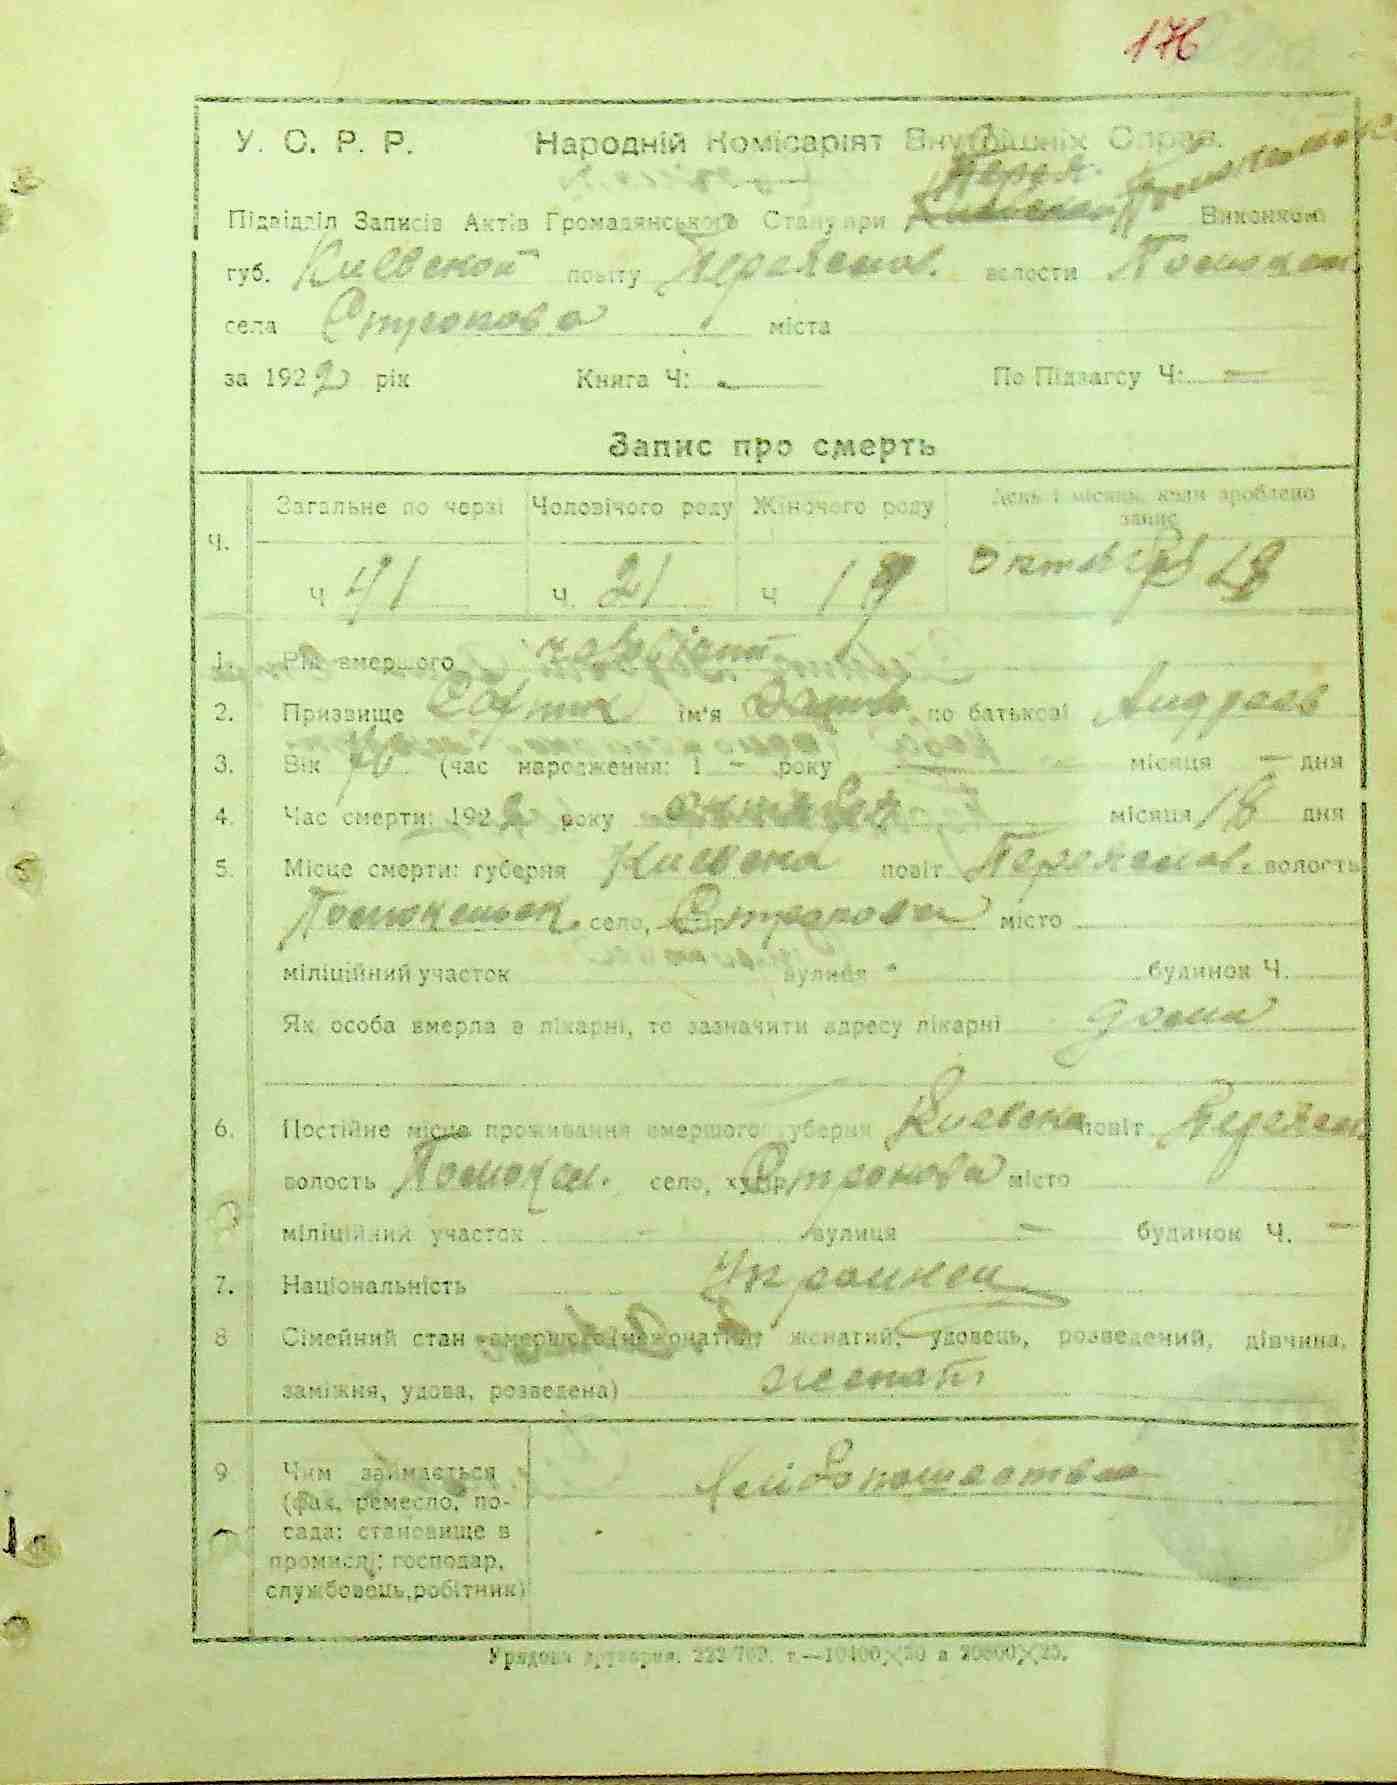 176
У. С. Р. Р. Народній Комісаріят Внутрішніх Справ.
Підвідділ Записів Актів Громадянського Стану при Виконком
губ. Киевской повіту Переяслов. волости
села міста
за 1922 рік Книга Ч: По Підзагсу Ч: —
Запис про смерть
Ч. Загальне по черзі Чоловічого роду Жіночого роду День і місяць, коли зроблено запис
Ч 41 Ч. 21 Ч 19 Октября 18
1. Рід вмершого
2. Призвище ім'я по батькові Андреев
3. Вік (час народження: 1 — року місяця — дня
4. Час смерти: 1922 року октября місяця 18 дня
5. Місце смерти: губерня Киевска повіт Переяслов. волость
село, місто
міліційний участок вулиця будинок Ч.
Як особа вмерла в лікарні, то зазначити адресу лікарні дома
6. Постійне місце проживання вмершого: губерня Киевска повіт Переясл
волость село, хутір місто
міліційний участок — вулиця — будинок Ч. —
7. Національність Украинец
8 Сімейний стан вмершого (нежонатий, жонатий, удовець, розведений, дівчина,
заміжня, удова, розведена) женат
9 Чим займається
(фах, ремесло, по-
сада: становище в
промислі: господар,
службовець, робітник)
Хлібопашество
Урядова друкарня.